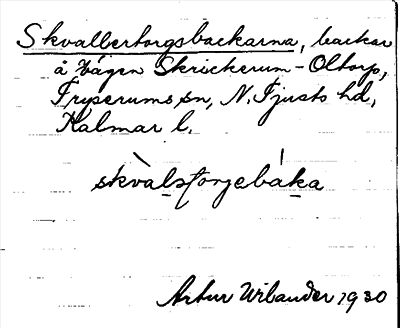 Skvaltertorgsbackarna, backar
å vägen Skrickerum–Oltorp,
Fryserums sn, N. Tjusts hd,
Kalmar l.
skvàlstorjebáka
Artur Wilander 1930